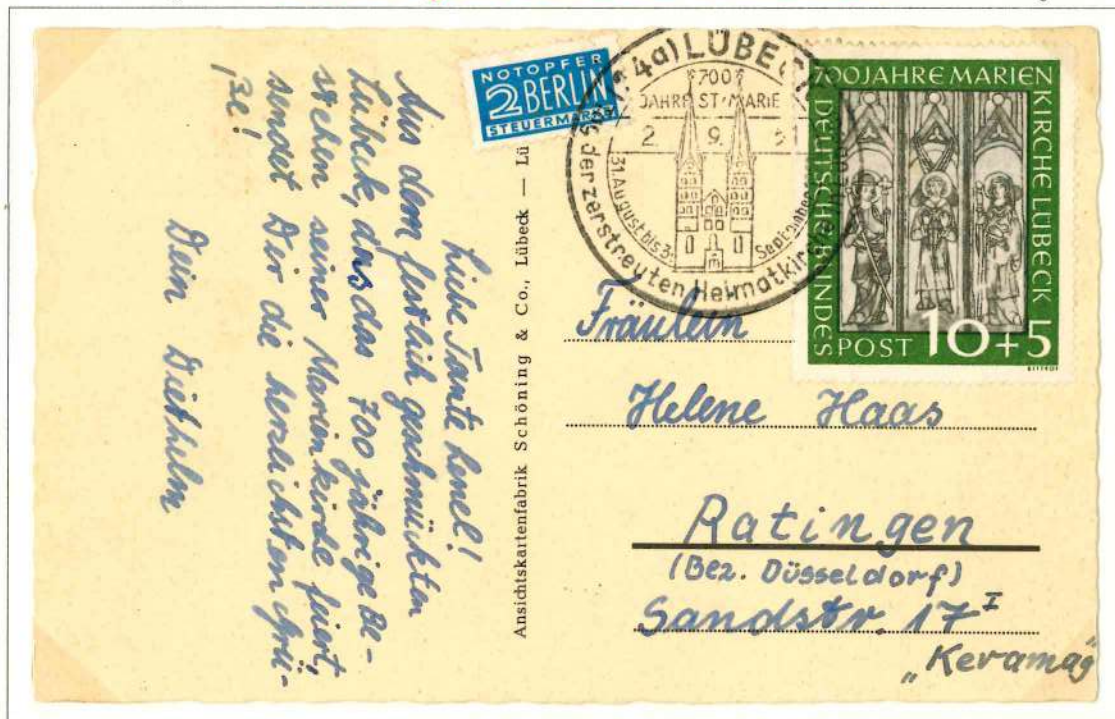 Liebe Tante Lenel!
Aus dem festlich geschmückten
Lübeck, das das 700 jährige Be-
stehen seiner Marienkirche feiert,
sendet Dir die herzlichsten Grü-
ße!
Dein Diethelm
Ansichtskartenfabrik Schöning & Co., Lübeck — Lü
NOTOPFER
2 BERLIN
STEUERMARKE
LÜBECK
700
JAHRE ST. MARIE
2. 9. 51
31. August bis 3. September
der zerstreuten Heimatkirche
700 JAHRE MARIEN
KIRCHE LÜBECK
DEUTSCHE BUNDES
POST 10+5
Fräulein
Helene Haas
Ratingen
(Bez. Düsseldorf)
Sandstr. 17 I
„Keramag"